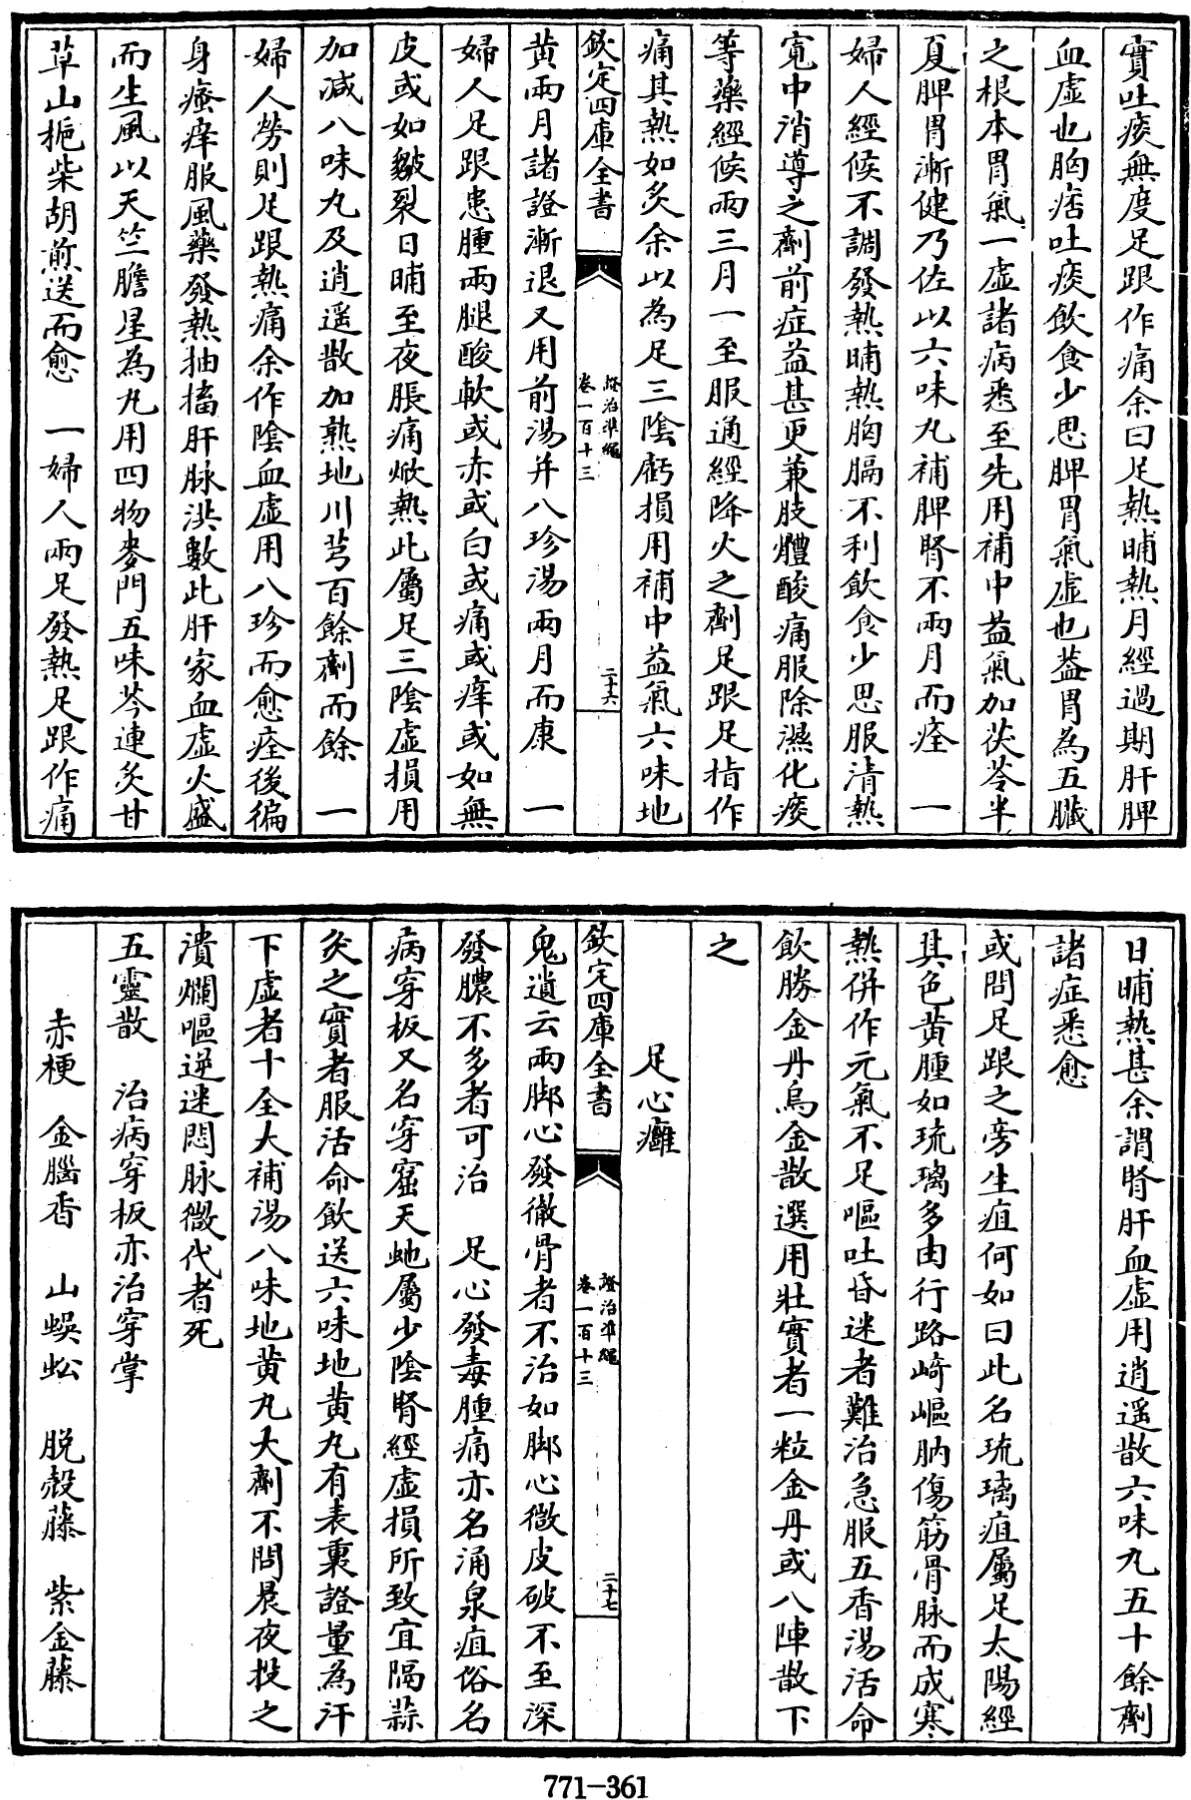 實吐痰無度足跟作痛余曰足熱晡熱月經過期肝脾
血虛也胸痞吐痰飲食少思脾胃氣虛也葢胃為五臟
之根本胃氣一虛諸病悉至先用補中益氣加茯苓半
夏脾胃漸健乃佐以六味丸補脾腎不兩月而痊　一
婦人經候不調發熱晡熱胸膈不利飲食少思服清熱
寛中消導之劑前症益甚更兼肢體酸痛服除濕化痰
等藥經候兩三月一至服通經降火之劑足跟足指作
痛其熱如炙余以為足三陰虧損用補中益氣六味地
欽定四庫全書
證治準繩
卷一百十三
二十六
黃兩月諸證漸退又用前湯并八珍湯兩月而康　一
婦人足跟患腫兩腿酸軟或赤或白或痛或痒或如無
皮或如皴裂日晡至夜脹痛焮熱此屬足三陰虛損用
加減八味丸及逍遥散加熟地川芎百餘劑而餘　一
婦人勞則足跟熱痛余作陰血虛用八珍而愈痊後徧
身瘙痒服風藥發熱抽搐肝脉洪數此肝家血虛火盛
而生風以天竺膽星為丸用四物麥門五味芩連炙甘
草山梔柴胡煎送而愈　一婦人兩足發熱足跟作痛
日晡熱甚余謂腎肝血虛用逍遥散六味丸五十餘劑
諸症悉愈
或問足跟之旁生疽何如曰此名琉璃疽屬足太陽經
其色黃腫如琉璃多由行路崎嶇胕傷筋骨脉而成寒
熱併作元氣不足嘔吐昏迷者難治急服五香湯活命
飲勝金丹烏金散選用壯實者一粒金丹或八陣散下
之
足心癰
欽定四庫全書
證治準繩
卷一百十三
二十七
鬼遺云兩脚心發徹骨者不治如脚心微皮破不至深
發膿不多者可治　足心發毒腫痛亦名涌泉疽俗名
病穿板又名穿窟天虵屬少陰腎經虛損所致宜隔蒜
灸之實者服活命飲送六味地黃丸有表裏證量為汗
下虛者十全大補湯八味地黃丸大劑不問晨夜投之
潰爛嘔逆迷悶脉微代者死
五靈散　治病穿板亦治穿掌
赤梗　金腦香　山蜈蚣　脱殻藤　紫金藤
771-361